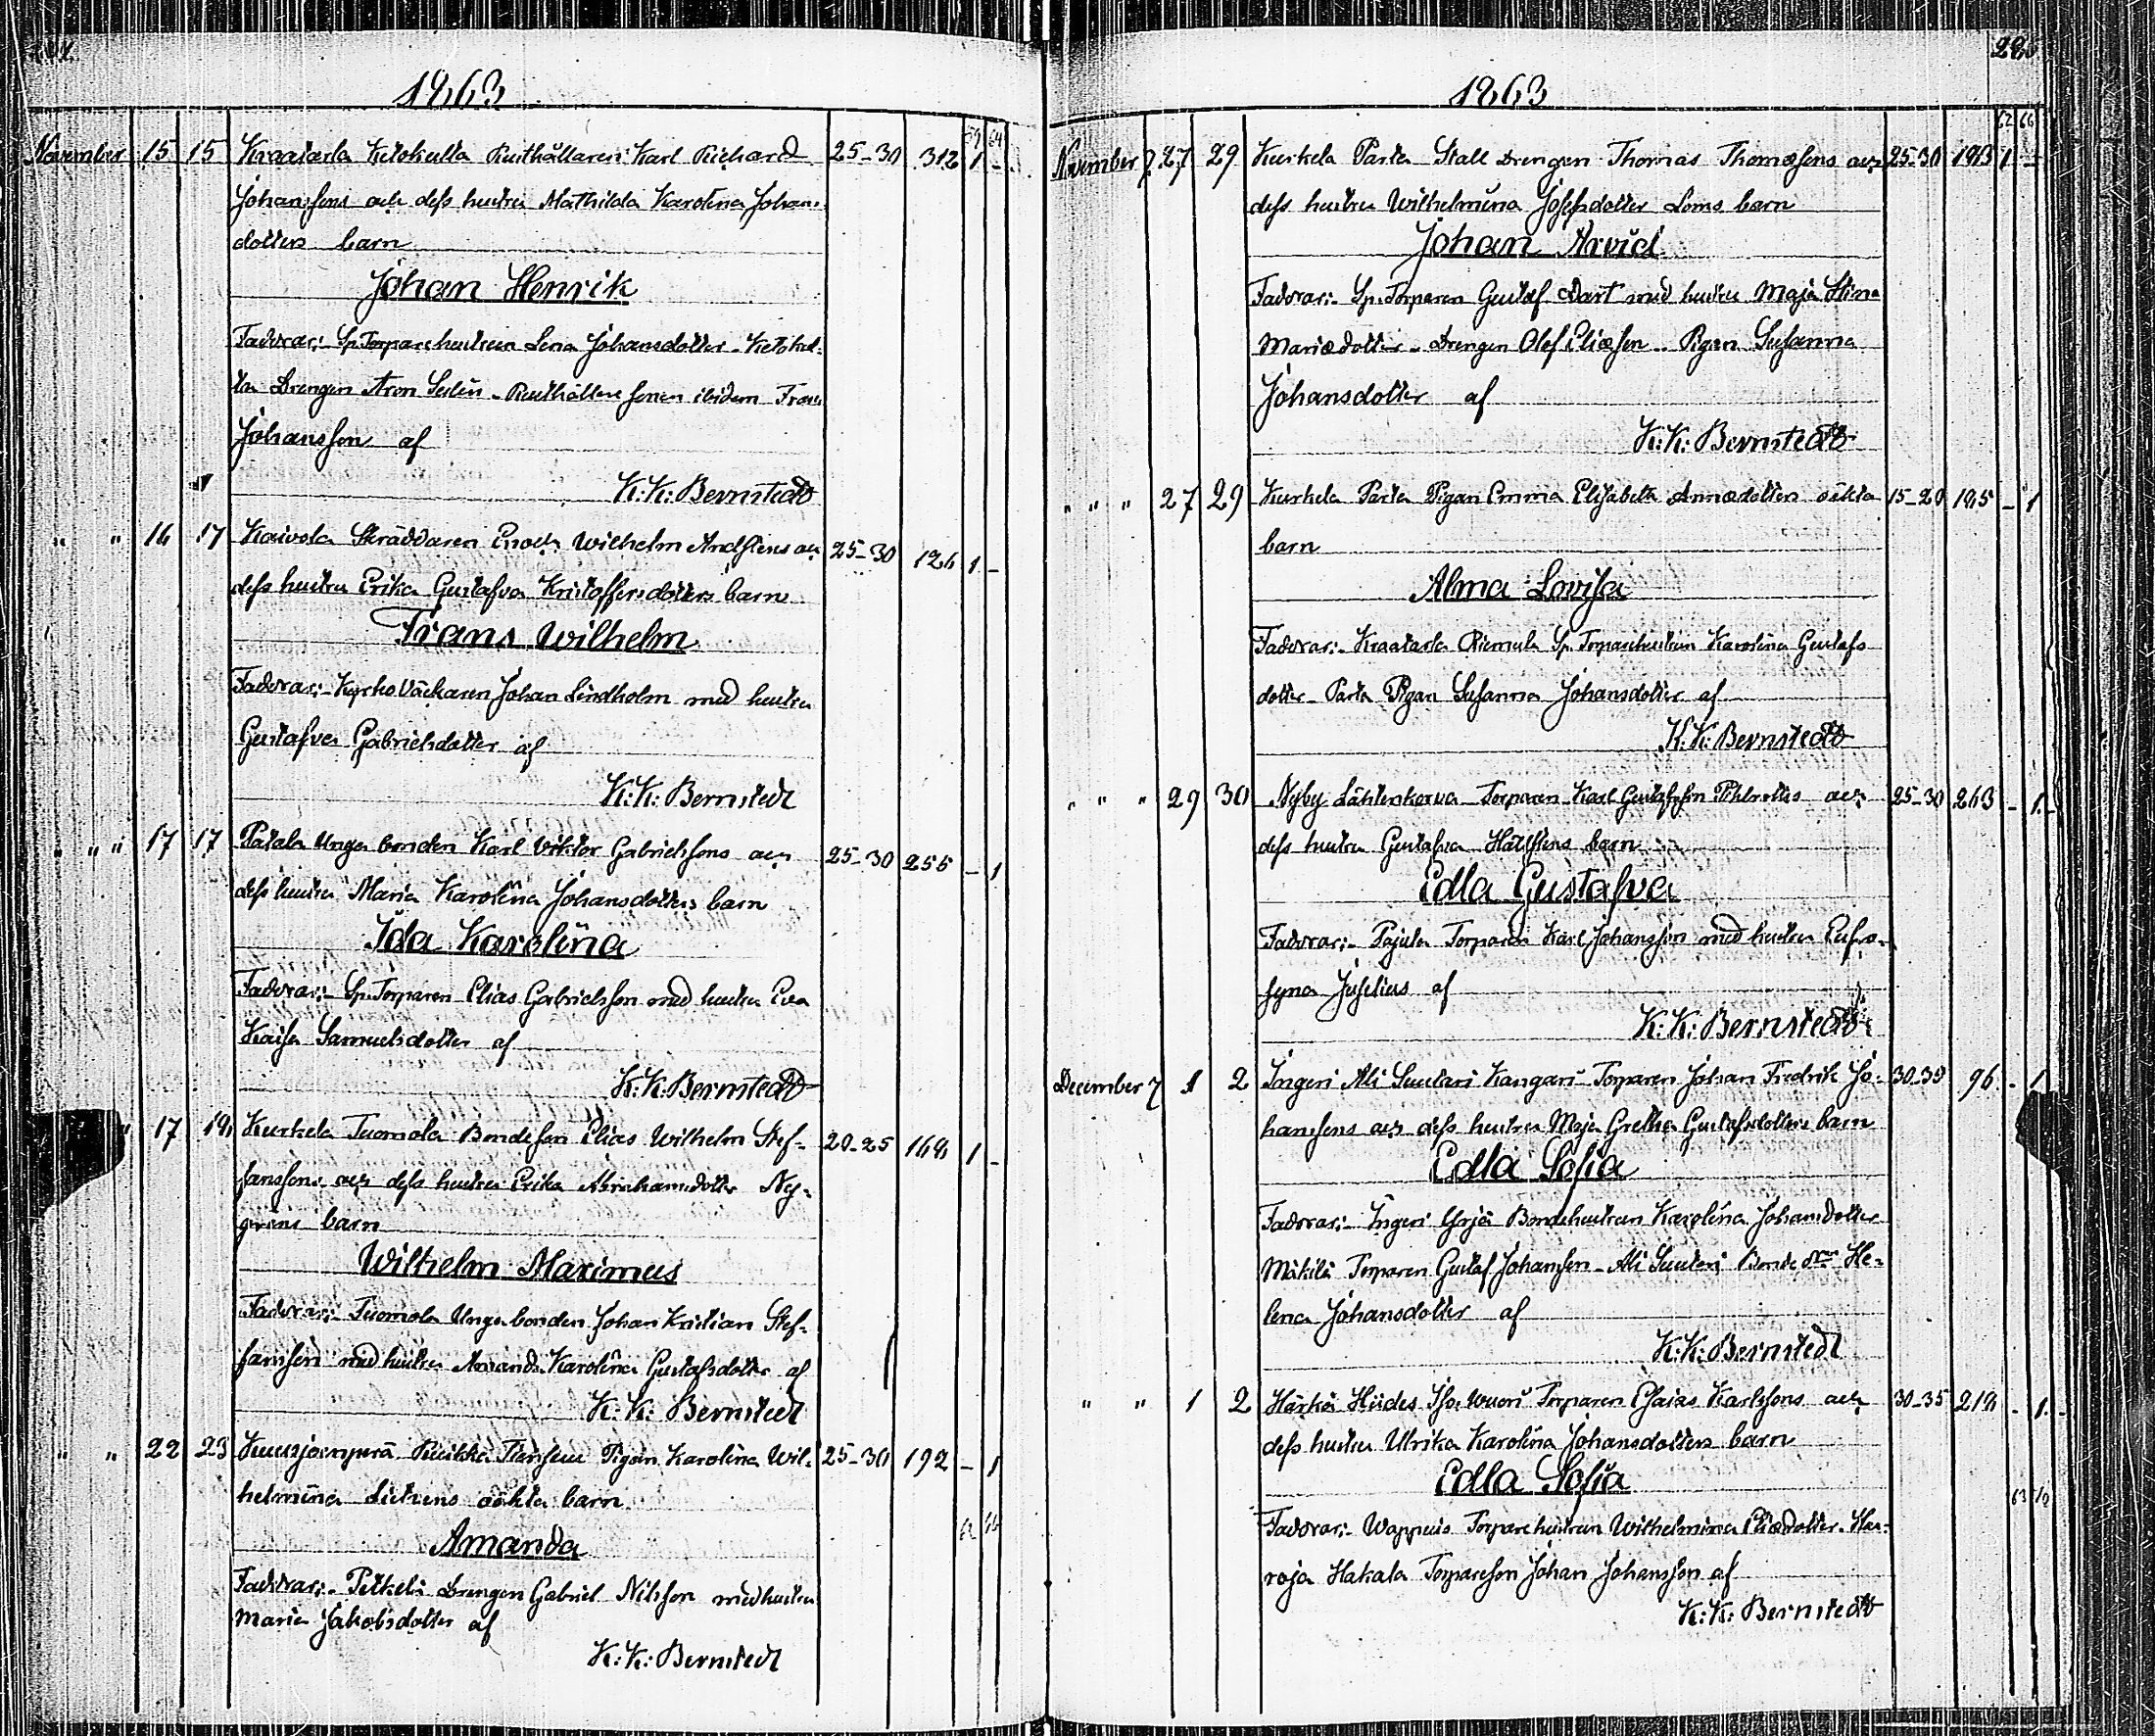 1863
59 64
November 15 15 Kraatarla Ketokulla Rusthållaren Karl Richard 25-30 312 1 -
Johanssons och dess hustru Mathilda Karolina Johans-
dotters barn
Johan Henrik
Faddrar:- Sp. Torparehustrun Lena Johansdotter - Ketokul-
la Drengen Aron Selin - Rusthållare sonen ibidem Frans
Johansson af
K:K: Bernstedt
" " 16 17 Kaivola Skräddaren Enoch Wilhelm Andsténs och 25-30 126 1 -
dess hustru Erika Gustafva Kristoffersdotters barn
Frans Wilhelm
Faddrar:- Kyrko Väckaren Johan Lindholm med hustru
Gustafva Gabrielsdotter af
K:K: Bernstedt
" " " 17 17 Patala Unga bonden Karl Viktor Gabrielssons och 25-30 255 - 1
dess hustru Maria Karolina Johansdotters barn
Ida Karolina
Faddrar:- Sp. Torparen Elias Gabrielsson med hustru Eva
Kaisa Samuelsdotter af
K:K: Bernstedt
" 17 19 Kurkela Tuomola Bondeson Elias Wilhelm Stef- 20-25 169 1 -
fanssons och dess hustru Erika Abrahamsdotter Ny-
grens barn
Wilhelm Maximus
Faddrar:- Tuomola Unga bonden Johan Kristian Stef-
fansson med hustru Amanda Karolina Gustafsdotter af
K:K: Bernstedt
" " 22 23 Kuusjoenperä Ruikka Pigan Karolina Wil- 25-30 192 - 1
helmina oäkta barn
62 66
Amanda
Faddrar:- Petkeli Drengen Gabriel Nilsson med hustru
Maria Jakobsdotter af
K:K: Bernstedt
225
1863
62 66
November 27 29 Kurkela Parta Stall Drengen Thomas Thomassons och 25-30 193 1 -
dess hustru Wilhelmina Josefsdotter Loms barn
Johan Arvid
Faddrar:- Sp. Torparen Gustaf Dart med hustru Maja Stina
Mariædotter - Drengen Olof Eliæson - Pigan Susanna
Johansdotter af
K:K: Bernstedt
" " " 27 29 Kurkela Parta Pigan Emma Elisabeth Annædotters oäkta 15-20 195 - 1
barn
Alma Lovisa
Faddrar:- Kraatarla Riemula Sp. Torparehustrun Karolina Gustafs-
dotter - Parta Pigan Susanna Johansdotter af
K:K: Bernstedt
" " " 29 30 Nyby Lähteenkorva Torparen Karl Gustafsson och 25-30 263 - 1
dess hustru Gustafva Hällsténs barn
Edla Gustafva
Faddrar:- Pajula Torparen Karl Johansson med hustru Eufro-
syna Juselius af
K:K: Bernstedt
December 1 2 Ingeri Ali Suutari Kangari Torparen Johan Fredrik Jo- 30-35 96 - 1
hanssons och dess hustru Maja Gretha Gustafsdotters barn
Edla Sofia
Faddrar:- Ingeri Yrjä Bondehustrun Karolina Johansdotter
Mäkilä Torparen Gustaf Johansson - Ali Suutari Bonde dtrn He-
lena Johansdotter af
K:K: Bernstedt
" " 1 2 Härkä Hiides Iso. wuori Torparen Esaias Karlssons och 30-35 219 - 1
dess hustru Ulrika Karolina Johansdotters barn
Edla Sofia
Faddrar:- Wappuis Torparehustrun Wilhelmina Eliædotter. Har-
roja Hakala Torpareson Johan Johansson af
K:K: Bernstedt